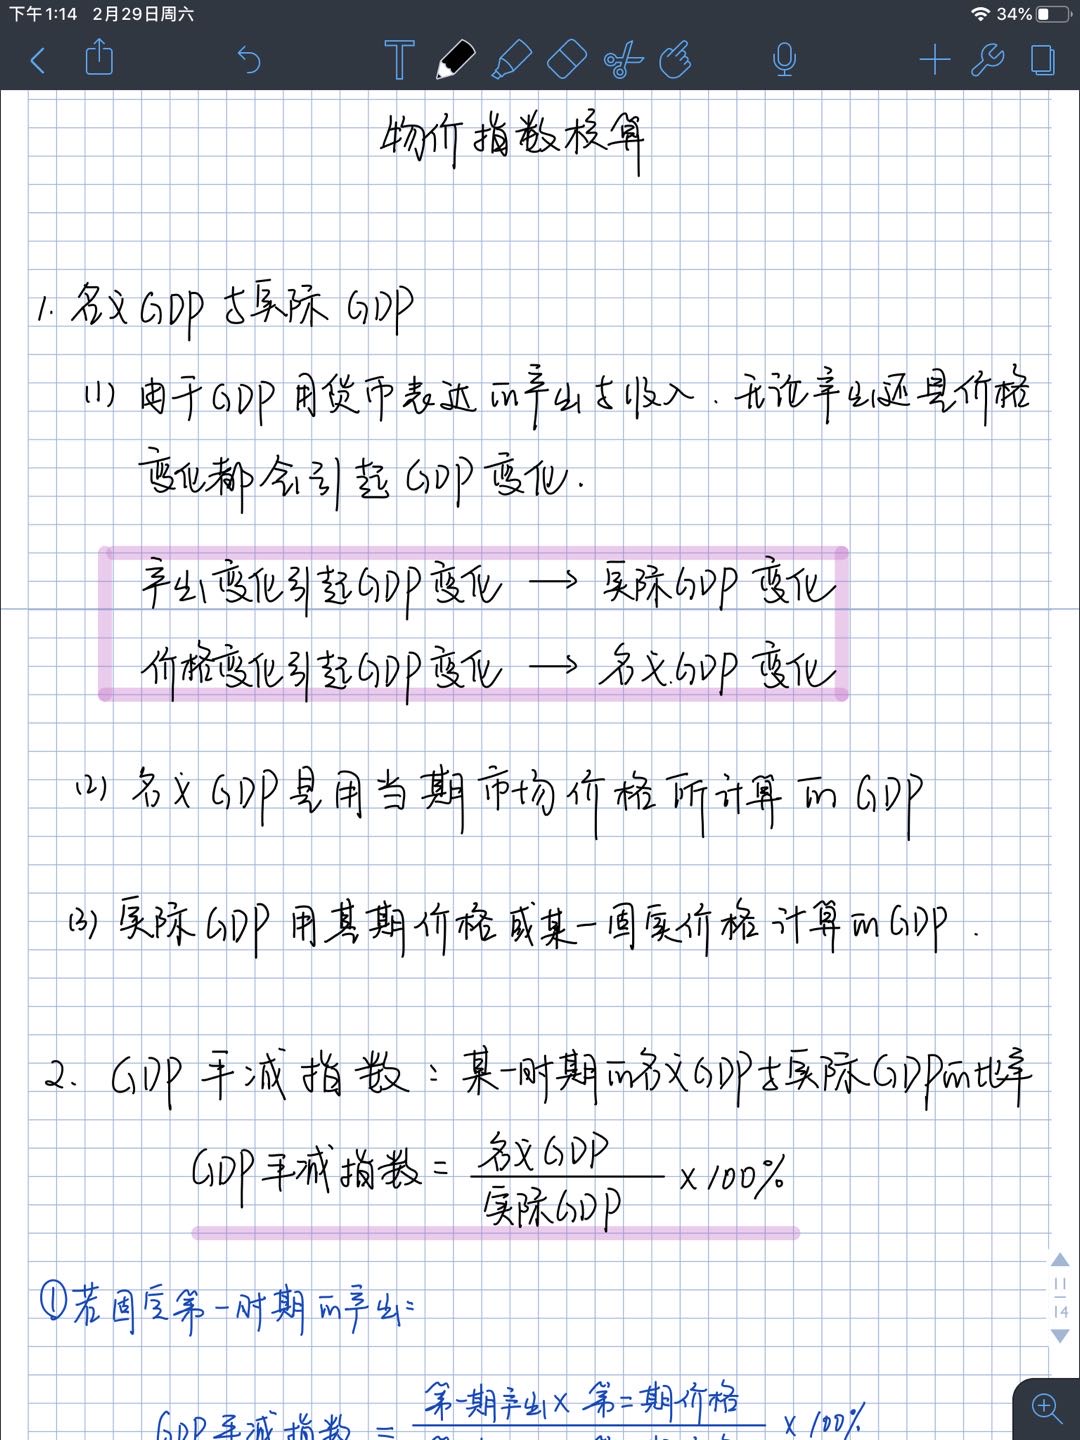 下午1:14 2月29日周六 34%
物价指数核算
1. 名义GDP与实际GDP
(1) 由于GDP用货币表达的产出与收入.无论产出还是价格
变化都会引起GDP变化.
产出变化引起GDP变化 → 实际GDP变化
价格变化引起GDP变化 → 名义GDP变化
(2) 名义GDP是用当期市场价格所计算的GDP
(3) 实际GDP用基期价格或某一固定价格计算的GDP.
2. GDP平减指数:某一时期的名义GDP与实际GDP的比率
GDP平减指数 = 名义GDP / 实际GDP × 100%
①若固定第一时期的产出:
第一期产出 × 第二期价格
GDP平减指数 = × 100%
11
14